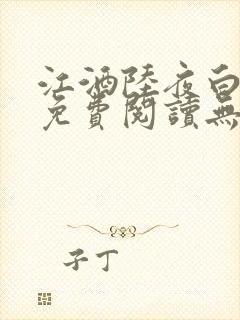 江酒陸夜白
免費閱讀無
子丁